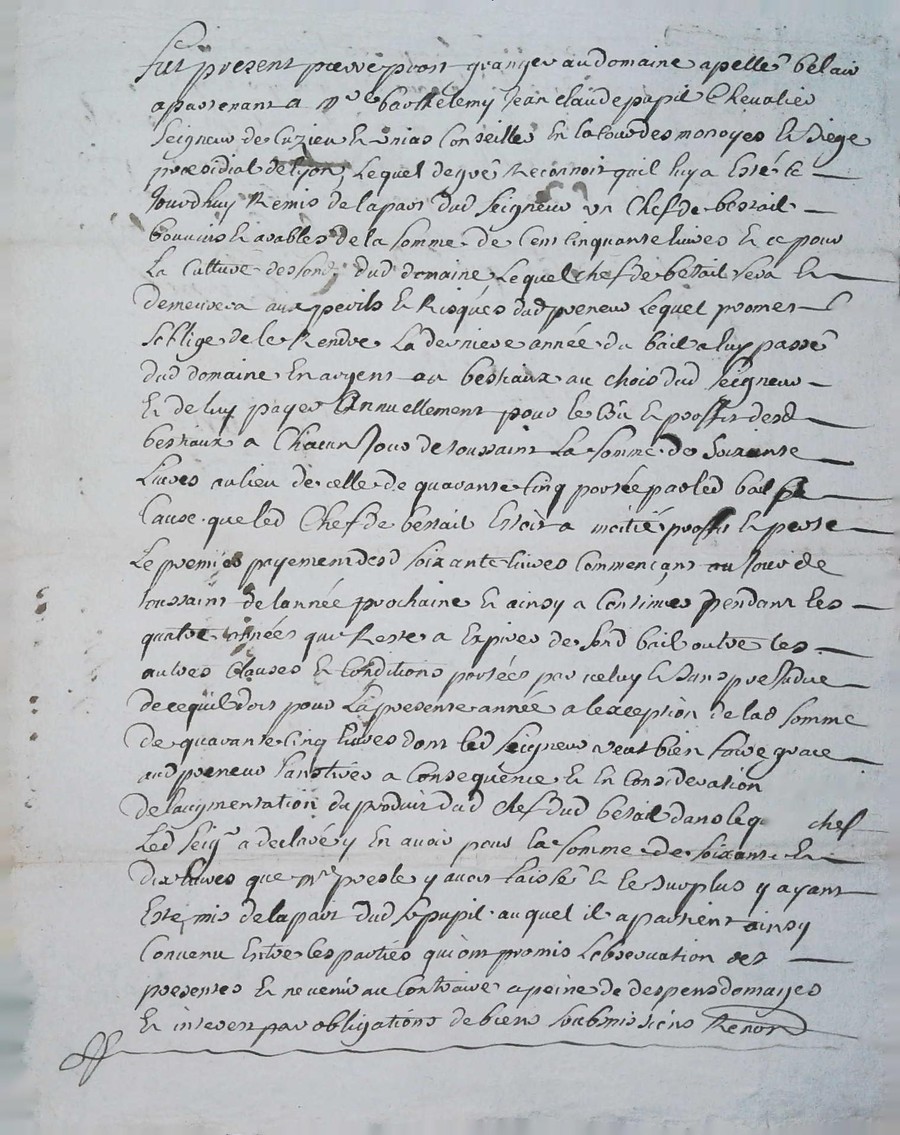 fut present pierre prost granger au domaine apellé belair
apartenant a Mre barthelemy Jean claude pupil Chevalier
Seigneur de Cuzieu Et unias Conseiller En la cour des monoyes Et Siege
presidial de lyon, Lequel de gré Reconnoit quil luy a Esté ce
Jourdhuy Remis de la part dud Seigneur un Chef de bestail
bouvins Et arables de la somme de Cent Cinquante livres Et ce pour
La Culture des fond dud domaine, Lequel chef de betail sera Et
demeurera aux perils Et Risques dud preneur Lequel promet
soblige de le Rendre La derniere année du bail a luy passé
dud domaine En argent ou bestiaux au choix dud Seigneur
Et de luy payer Annuellement pour les Cru Et proffit desd
bestiaux a Chacun Jour de toussaint La somme de Soixante
Livres au lieu de celle de quarante Cinq portée par led bail
Cause que led Chef de bestail Estoit a moitié proffit Et perte
Le premier payement desd soixante livres Commençant au Jour de
toussaint de lannée prochaine Et ainsy a Continuer pendant les
quatre années qui Reste a Expirer de sond bail outre les
autres Clauses Et Conditions portées par iceluy Et sans prejudice
de cequil doit pour La presente année a lexception de lad somme
de quarante Cinq livres dont led Seigneur veut bien faire grace
aud preneur sans tirer a Consequence Et En Consideration
de laugmentation du produit dud chef dud betail dans leq chef
Led Seigr a declaré y En avoir pour la somme de soixante Et
dix livres que Mr presle y avoit laissé Et le surplus y ayant
Esté mis de la part dud Sr pupil auquel il apartient ainsy
Convenu Entre les parties qui ont promis Lobservation des
presentes Et ne venir au Contraire a peine de despens domages
Et interest par obligations de biens soubmissions Renon